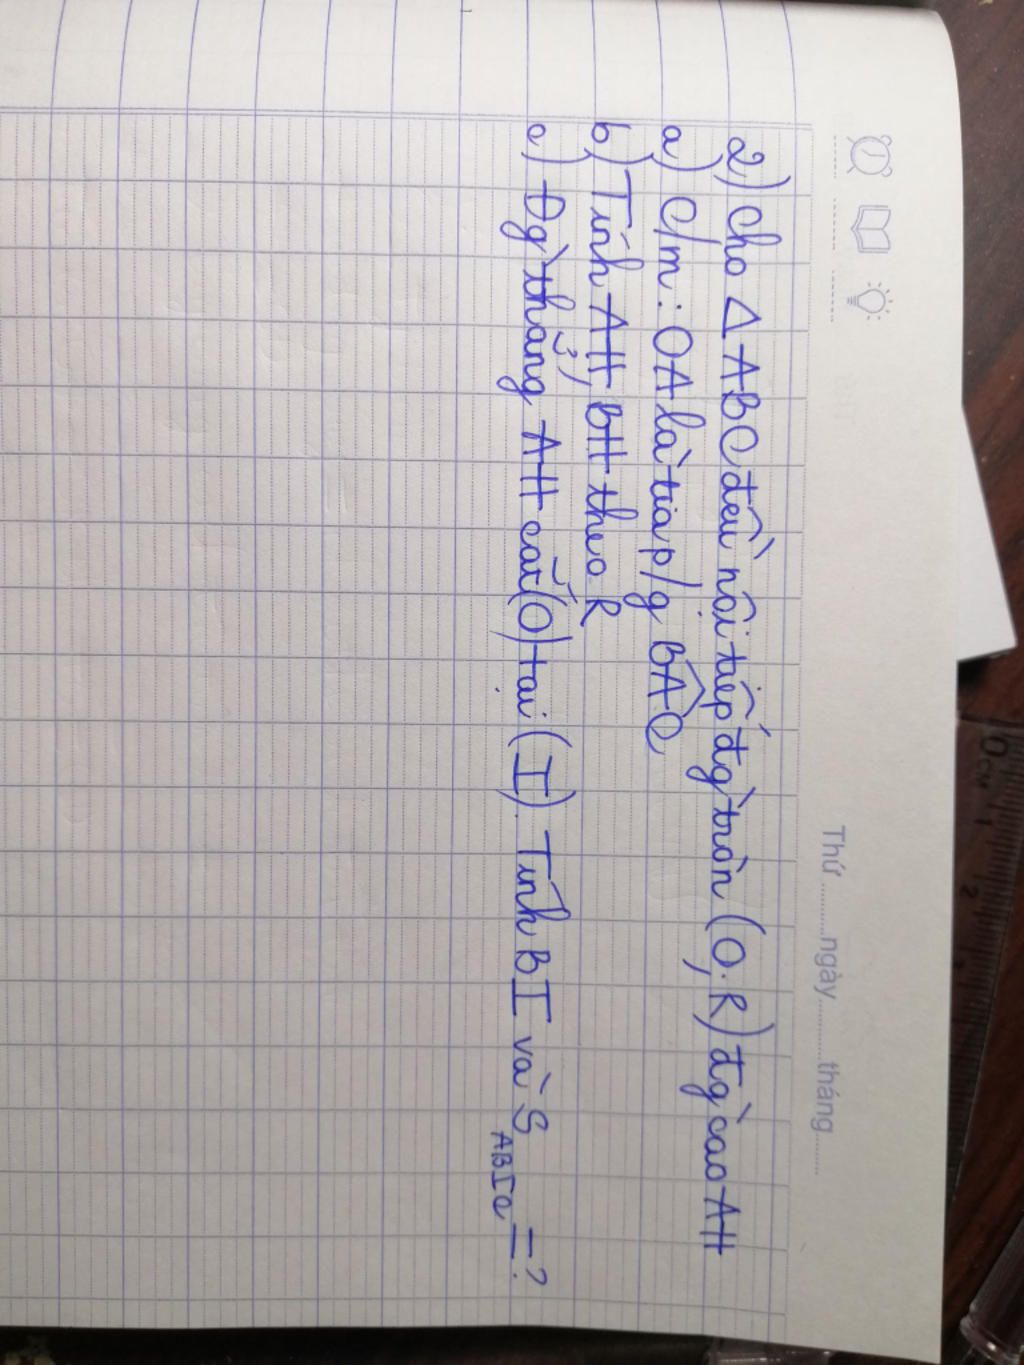 Thứ...........ngày...........tháng...........
2) Cho Δ ABC đều nội tiếp đg̀ tròn (O; R) đg̀ cao AH
a) C/m: OA là tia p/g BÂC
b) Tính AH, BH theo R
c) Đg̀ thẳng AH cắt (O) tại (I). Tính BI và S ABIC = ?
0 CM 1 2 3